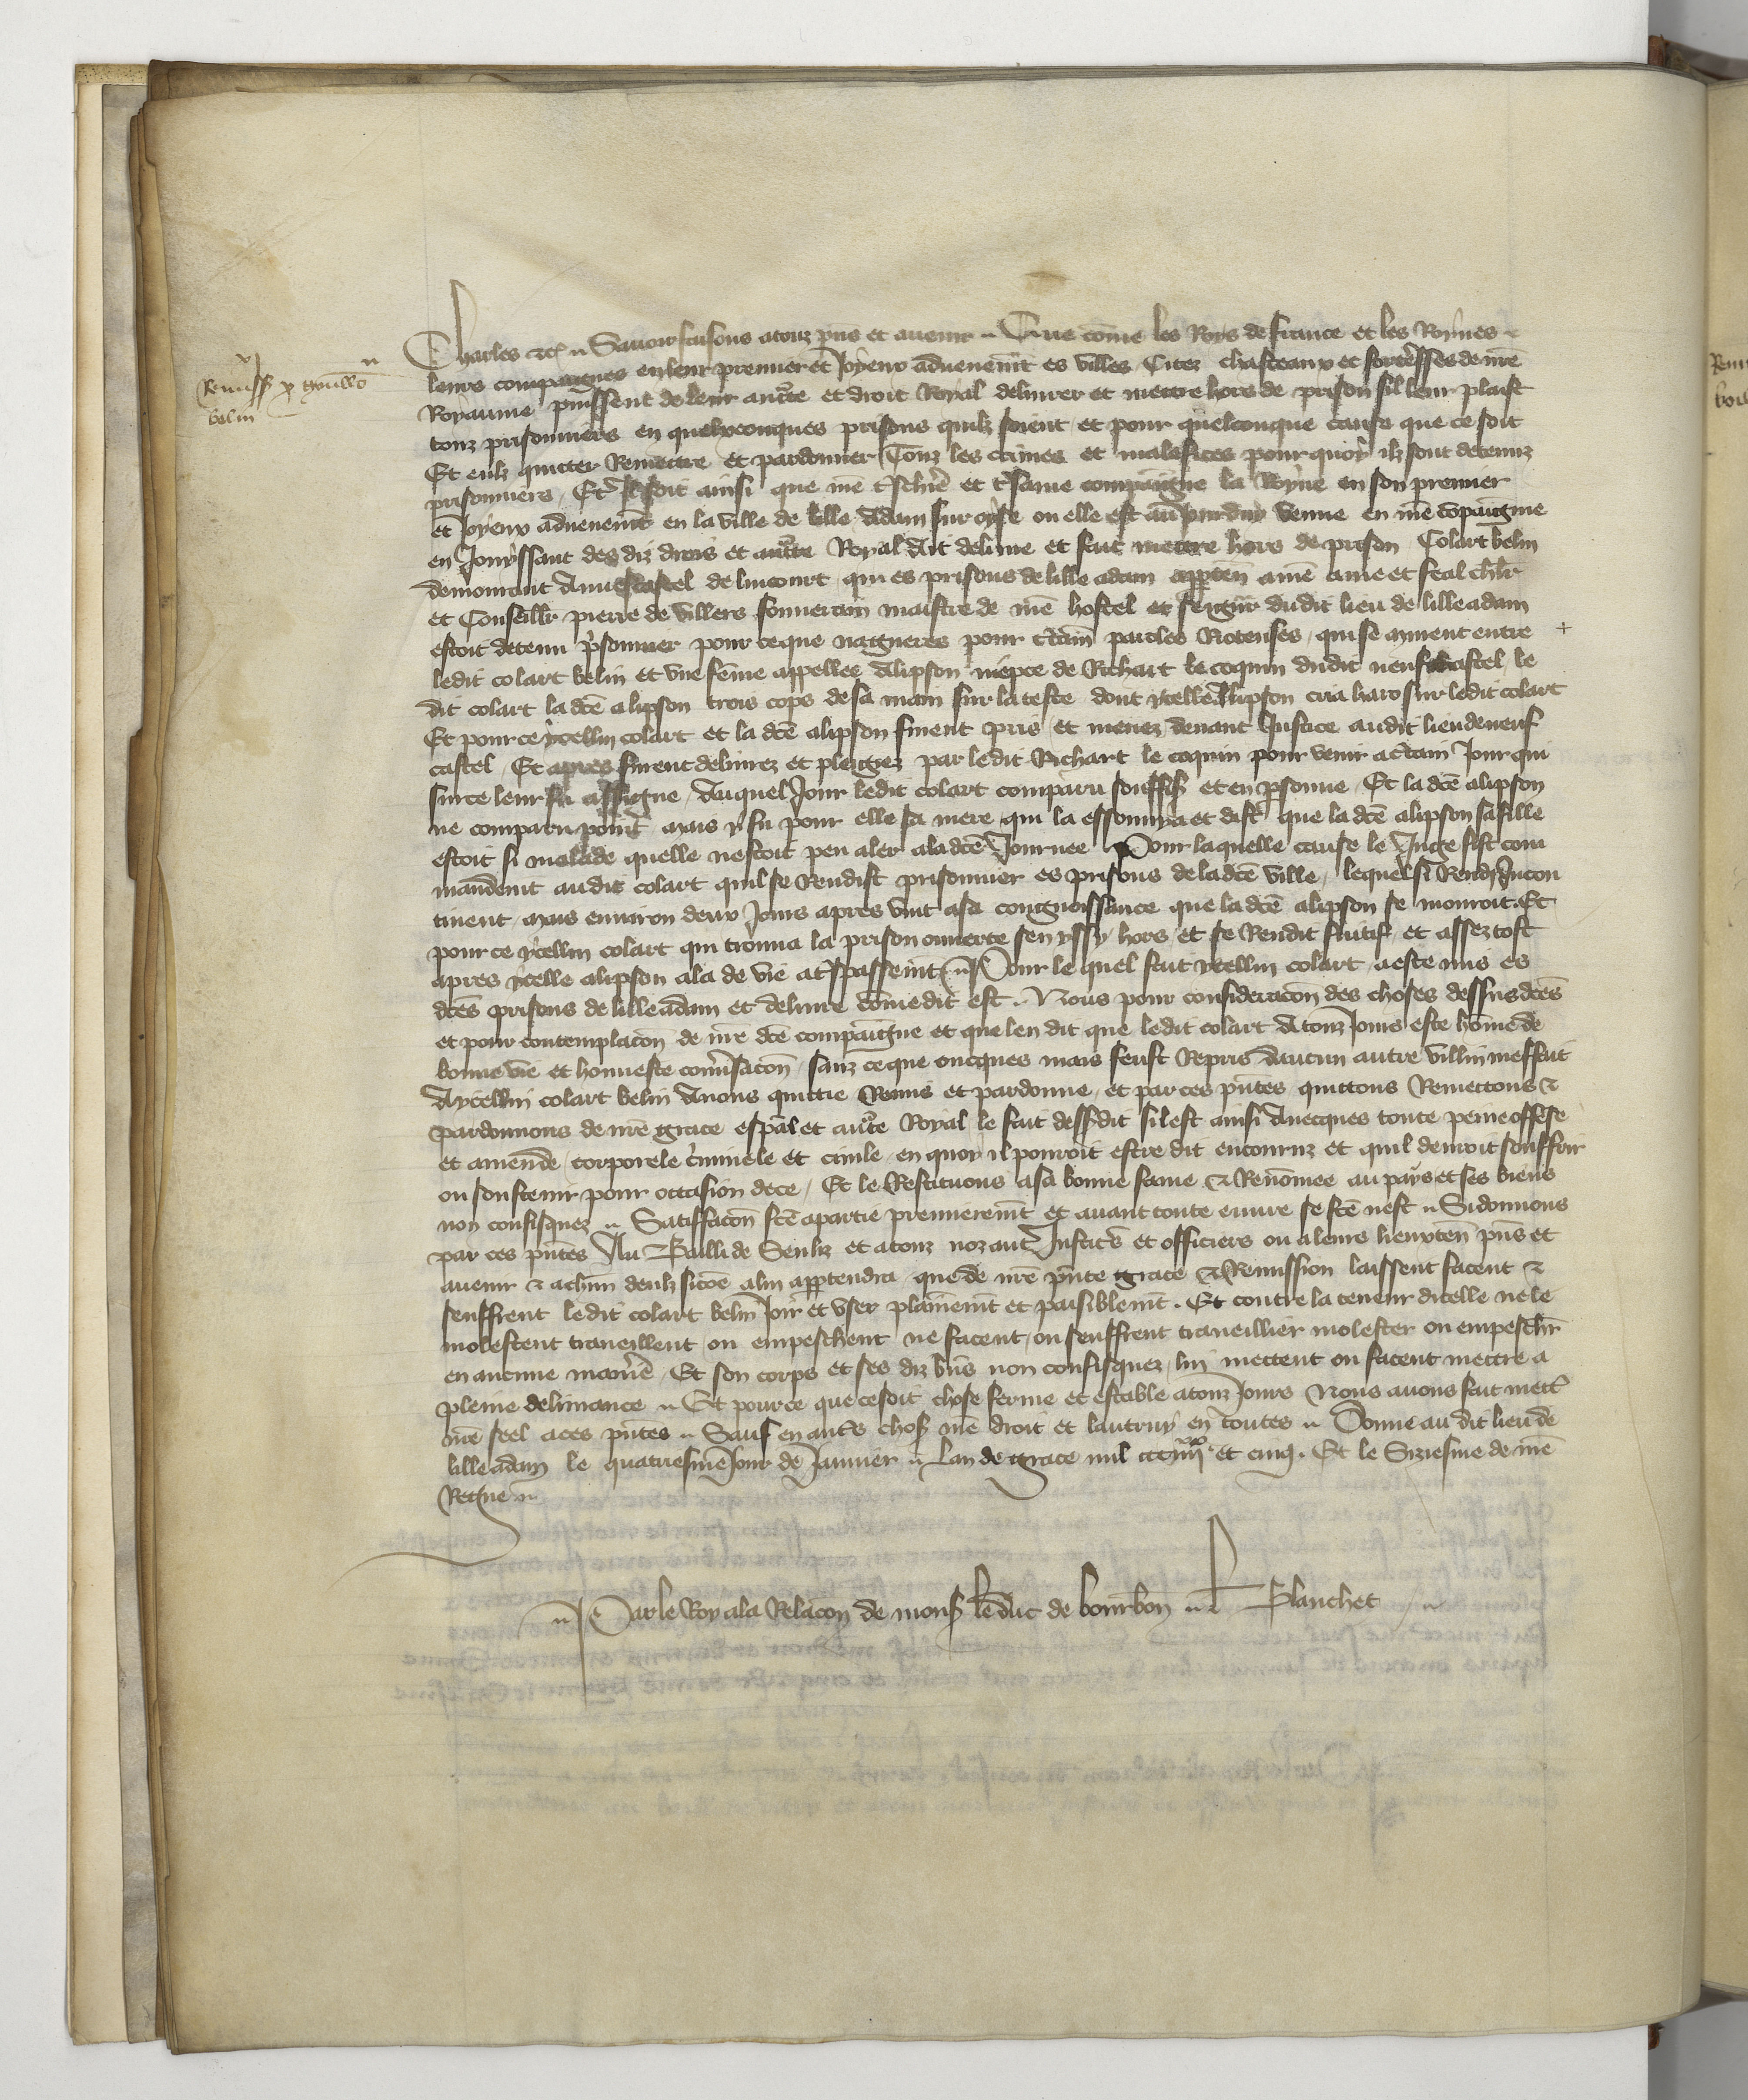 Charles etc. Savoir faisons a touz pñs et avenir Que cōme les Roys de france et les Roỹnes
leurs compaignes en leur premier et Joyeux advenemt es villes Citez chasteaux et forteresses de nr̃e
Royaume puissent de leur auctte et droit Royal delivrer et mettre hors de prison sil leur plaist
touz prisonniers en quelxconques prisons quilz soient et pour quelconque cause que ce soit
Et eulz quitter Remettre et pardonner Touz les crimes et malefices pour quoy ilz sont detenuz
prisonniers Et Il soit ainsi que nr̃e tschiẽ et tsame compaigne la Royne en son premier
et Joyeux advenemt en la ville de lille Adam sur oyse ou elle est au Jourduy venue en nr̃e cõpaignie
en Jouyssant des diz drois et auctte Royal Ait delivre et fait mettre hors de prison Colart belin
demourant A neufcastel de lincourt qui es prisons de lille adam apparteñ a nr̃e ame et feal chlr̃
et Conseillr̃ pierre de villers souverain maistre de nr̃e hostel et seigñr dudit lieu de lille adam
estoit detenu p̃sonnier pour ce que nagueres pour c̃taines paroles Rotenses qui se murent entre
ledit colart belin et une fẽme appellee Alipson niepce de Richart le coquin dudit neufchastel le
dit colart la dc̃e alipson trois cops de sa main sur la teste dont ycelle Alipson cria haro sur ledit colart
Et pour ce ycellui colart et la dc̃e alipson furent pris et menez devant Justice audit lieu de neuf
castel Et apres furent delivrez et pleigez par ledit Richart le coquin pour venir a c̃tain Jour qui
sur ce leur fu assigne Auquel Jour ledit colart comparu souffiss et en p̃sonne Et la dc̃e alipson
ne comparu point mais y fu pour elle sa mere qui la essonnya et dist que la dc̃e alipson sa fille
estoit si malade quelle nestoit peu aler a la dc̃e Journee Pour laquelle cause le Juge fist com
mandemt audit colart quil se Rendist prisonnier es prisons de la dc̃e ville lequel si Rendi Incon
tinent mais environ deux Jours apres vint a sa congnoissance que la dc̃e alipson se mouroit. Et
pour ce ycellui colart qui trouva la prison ouverte sen yssy hors et se Rendit fuitif et assez tost
apres ycelle alipson ala de vie a t̃spassemt Pour le quel fait ycellui colart a este mis es
dc̃es prisons de lille adam et delivre cõme dit est. Nous pour consideracõn des choses dessusdc̃es
et pour contemplacõn de nr̃e dc̃e compaigne et que len dit que ledit colart A touz Jours este hõme de
bonne vie et honneste conv̉sacõn sanz ce que oncques mais feust Repris daucun autre villain meffait
A ycellui colart belin Avons quittie Remis et pardonne et par ces p̃ntes quittons Remettons et
pardonnons de nr̃e grace esp̃al et auctte Royal le fait dessusdit sil est ainsi Avecques toute peine offese
et amende corporele c̃minele et civile en quoy il pouroit estre dit encouruz et quil devroit souffrir
ou soustenir pour occasion de ce Et le Restituons a sa bonne fame et Renõmee au pays et ses biens
non confisquez Satiffacõn fc̃e a partie premieremt et avant toute euvre se fc̃e nest Si donnons
par ces p̃ntes Au Bailli de Senliz et a touz noz aut̃ Justic̃s et officiers ou a leurs lieuxteñ p̃ns et
avenir et a chũn deulz sicõe a lui appartendra que de nr̃e p̃nte grace et Remission laissent facent et
seuffrent ledit colart belin Joir et user plainemt et paisiblemt. Et contre la teneur dicelle ne le
molestent traveillent ou empeschent ne facent ou seuffrent traveillier molester ou empeschr̃
en aucune manr̃e Et son corps et ses diz biẽs non confisquez lui mettent ou facent mettre a
pleine delivrance Et pour ce que ce soit chose ferme et estable a touz Jours Nous avons fait mett̃
nr̃e seel a ces p̃ntes Sauf en aut̃s choses nr̃e droit et lautruy en toutes Donne au dit lieu de
lille adam le quatriesme Jour de Janvier Lan de grace mil ccciiiixx et cinq. Et le Siziesme de nr̃e
Regne
Par le Roy a la Relacõn de mons le duc de bourbon Blanchet
Remiss p
belin